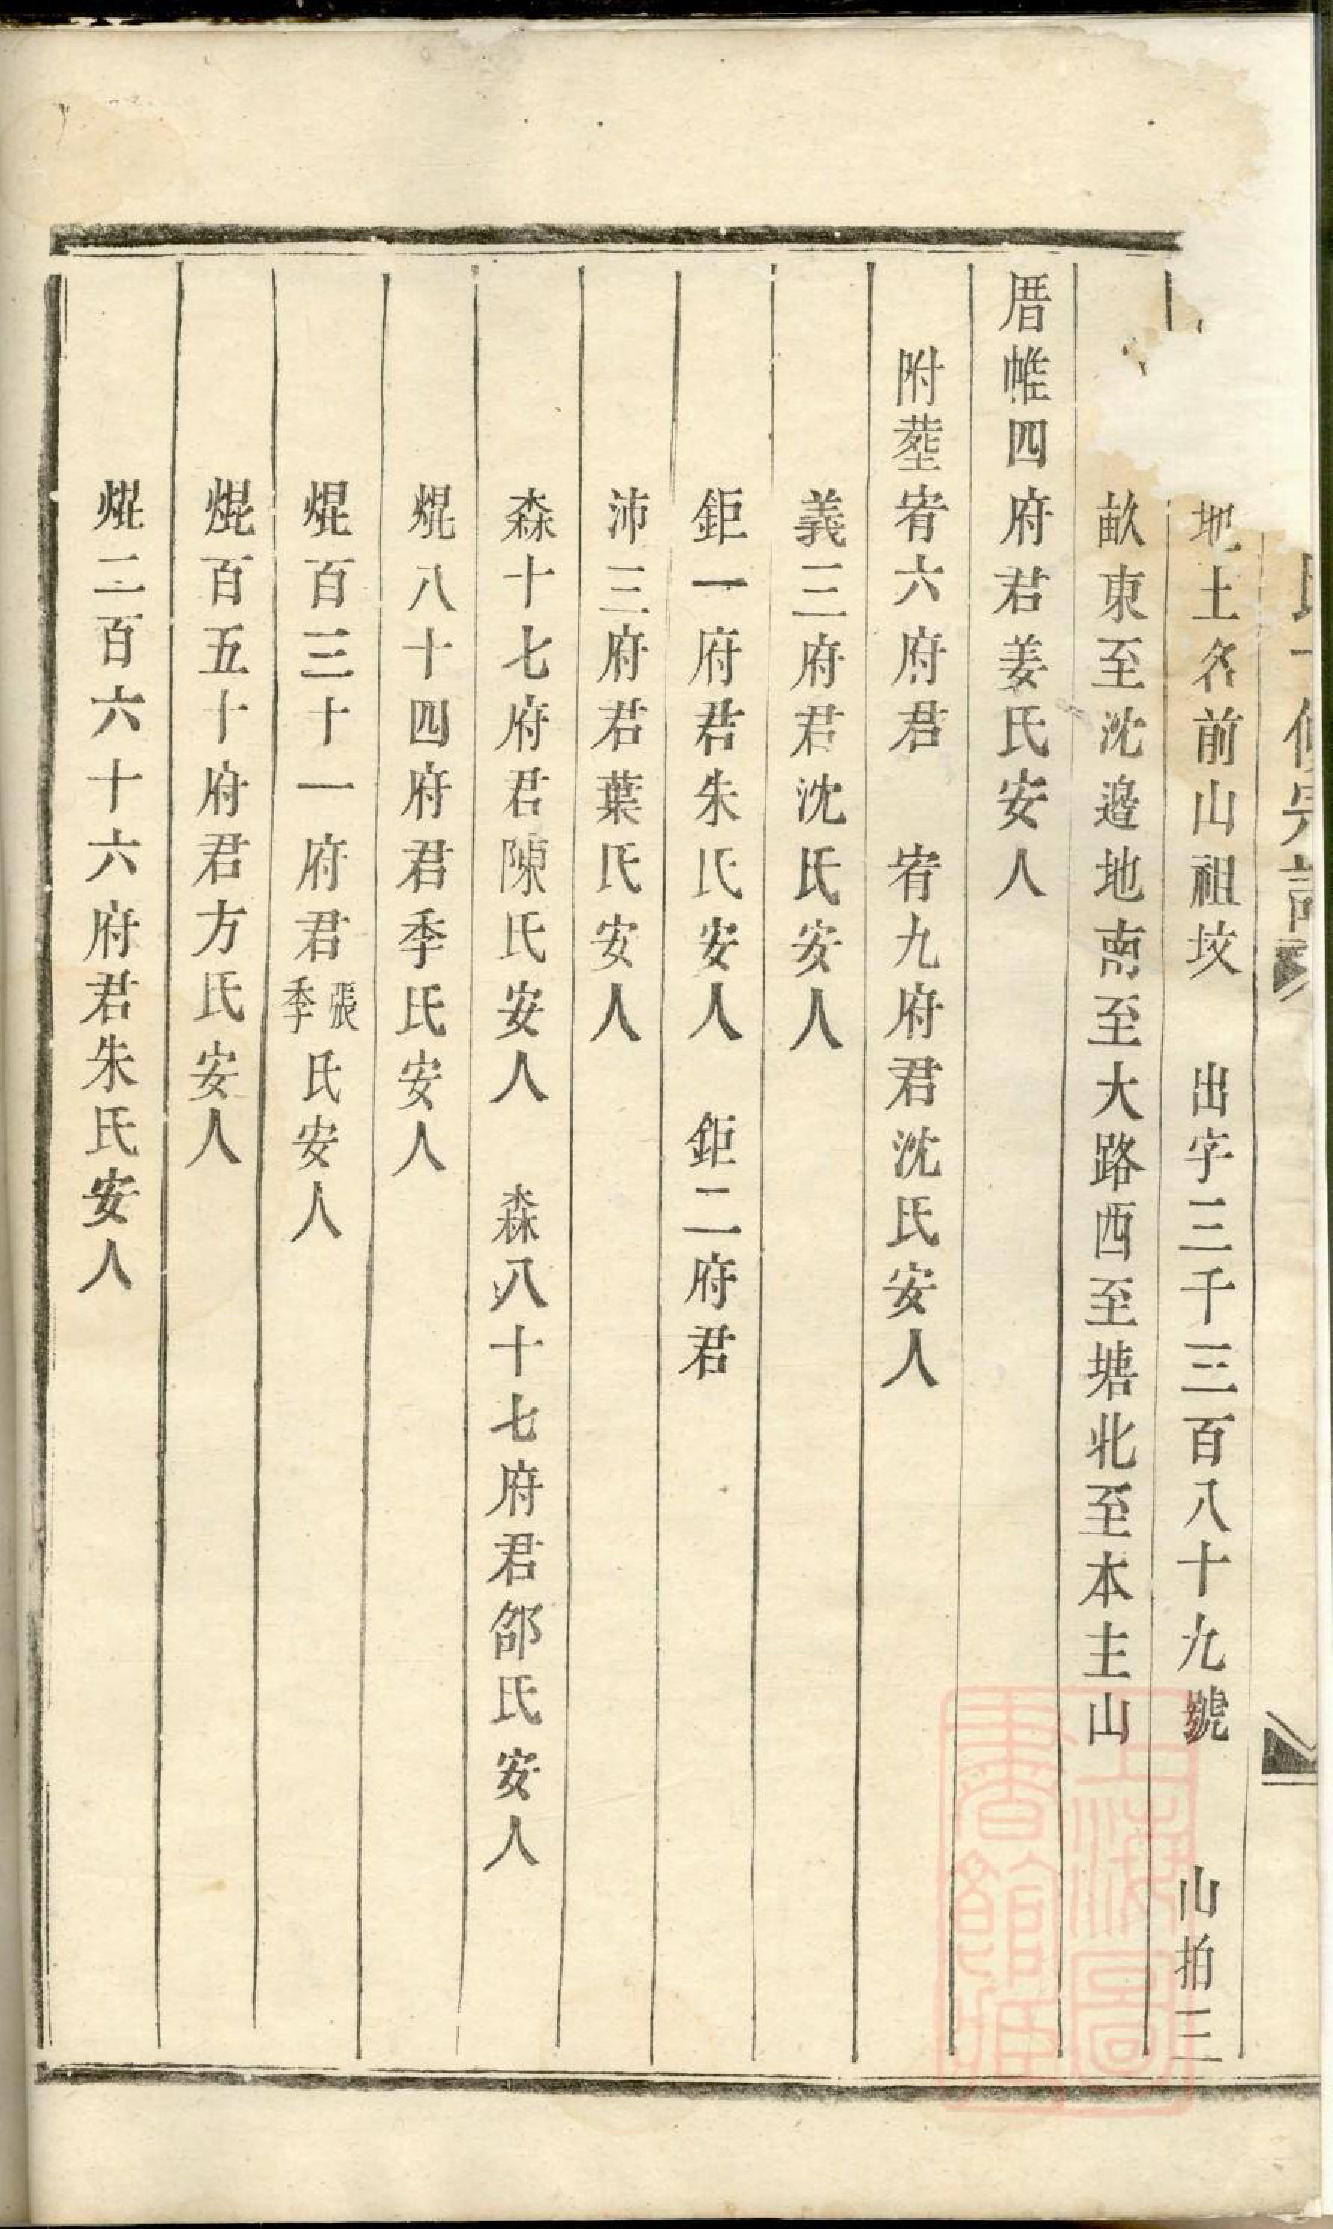 地土名前山祖坟　出字三千三百八十九號　山拍三
畝東至沈邉地南至大路西至塘北至本主山
厝帷四府君姜氏安人
附塟宥六府君　宥九府君沈氏安人
義三府君沈氏安人
鉅一府君朱氏安人　鉅二府君
沛三府君葉氏安人
森十七府君陳氏安人　森八十七府君邰氏安人
焜八十四府君季氏安人
焜百三十一府君張季氏安人
焜百五十府君方氏安人
焜二百六十六府君朱氏安人
上海圖書館藏